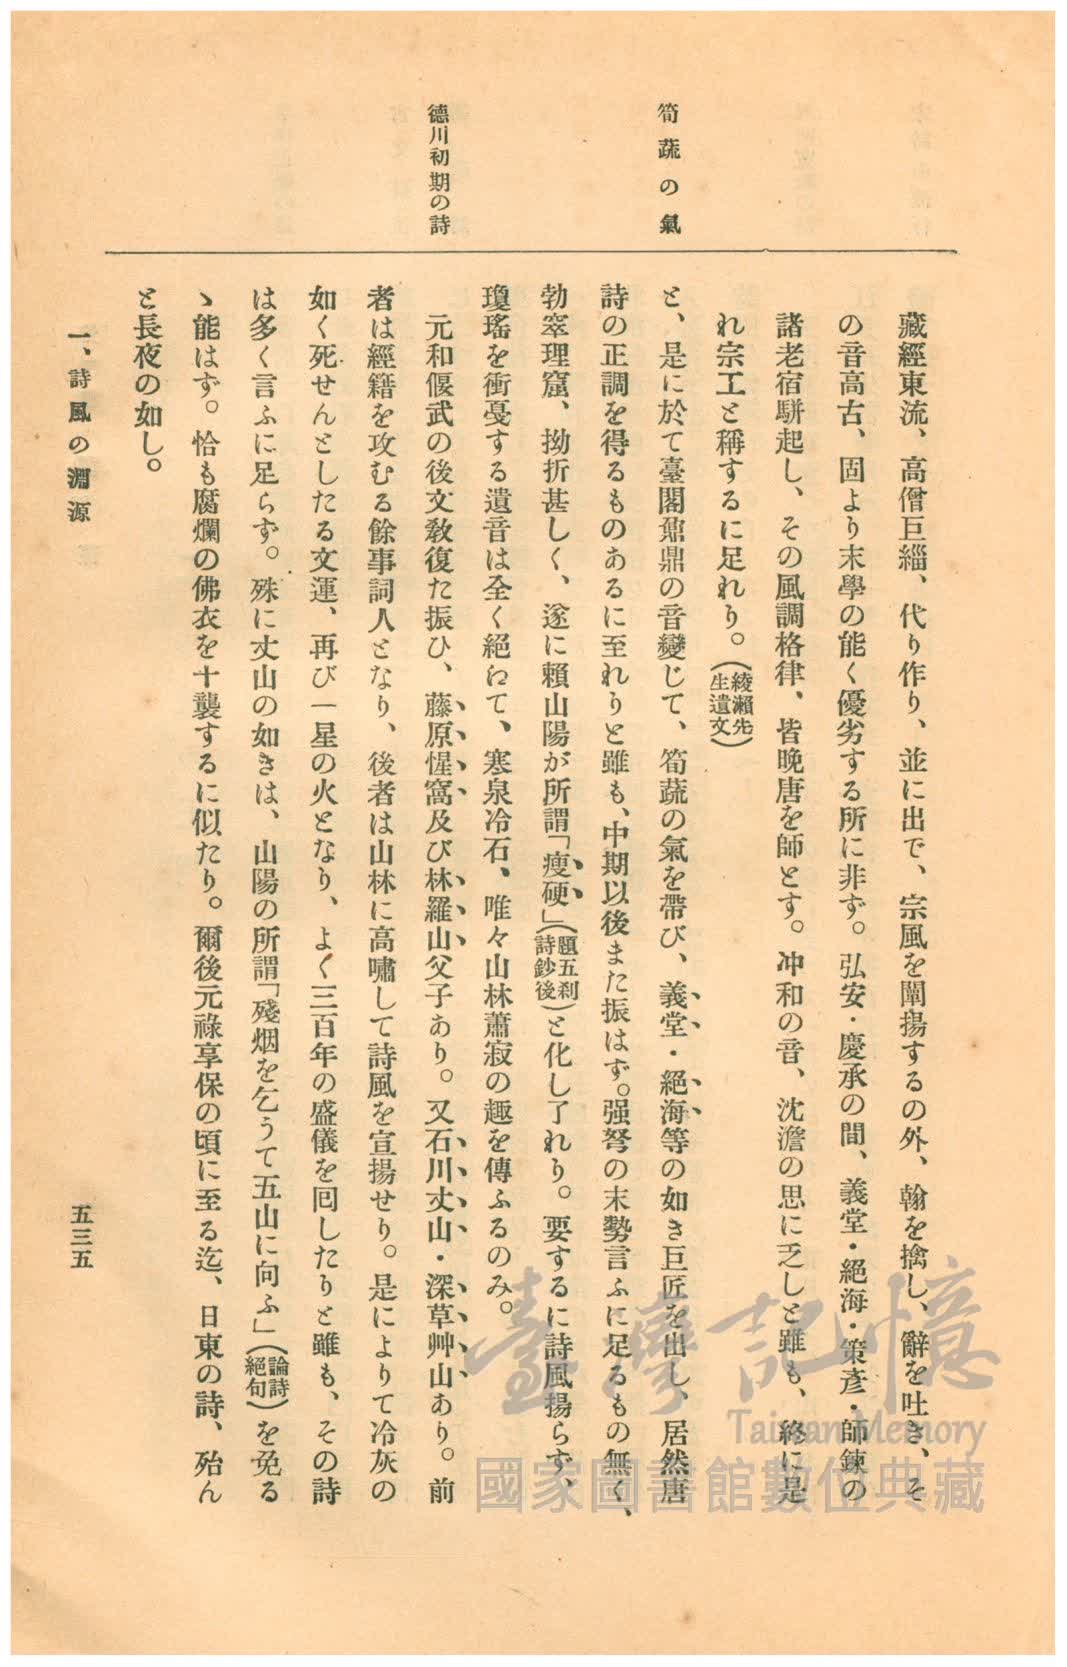 筍蔬の氣
德川初期の詩
藏經東流、高僧巨緇、代り作り、並に出で、宗風を闡揚するの外、翰を摛し、辭を吐き、そ
の音高古、固より末學の能く優劣する所に非ず。弘安・慶承の間、義堂・絕海・策彥・師鍊の
諸老宿駢起し、その風調格律、皆晩唐を師とす。冲和の音、沈澹の思に乏しと雖も、終に是
れ宗工と稱するに足れり。(綾瀨先生遺文)
と、是に於て臺閣鼐鼎の音變じて、筍蔬の氣を帶び、義堂・絕海等の如き巨匠を出し、居然唐
詩の正調を得るものあるに至れりと雖も、中期以後また振はず。强弩の末勢言ふに足るもの無く、
勃窣理窟、拗折甚しく、遂に賴山陽が所謂「瘦硬」(題五刹詩鈔後)と化し了れり。要するに詩風揚らず、
瓊瑤を衝戞する遺音は全く絕ねて、寒泉冷石、唯々山林蕭寂の趣を傳ふるのみ。
元和偃武の後文敎復た振ひ、藤原惺窩及び林羅山父子あり。又石川丈山・深草艸山あり。前
者は經籍を攻むる餘事詞人となり、後者は山林に高嘯して詩風を宣揚せり。是によりて冷灰の
如く死せんとしたる文運、再び一星の火となり、よく三百年の盛儀を囘したりと雖も、その詩
は多く言ふに足らず。殊に丈山の如きは、山陽の所謂「殘烟を乞うて五山に向ふ」(論詩絕句)を免る
ゝ能はず。恰も腐爛の佛衣を十襲するに似たり。爾後元祿享保の頃に至る迄、日東の詩、殆ん
と長夜の如し。
一、詩風の淵源
五三五
臺灣記憶
Taiwan Memory
國家圖書館數位典藏